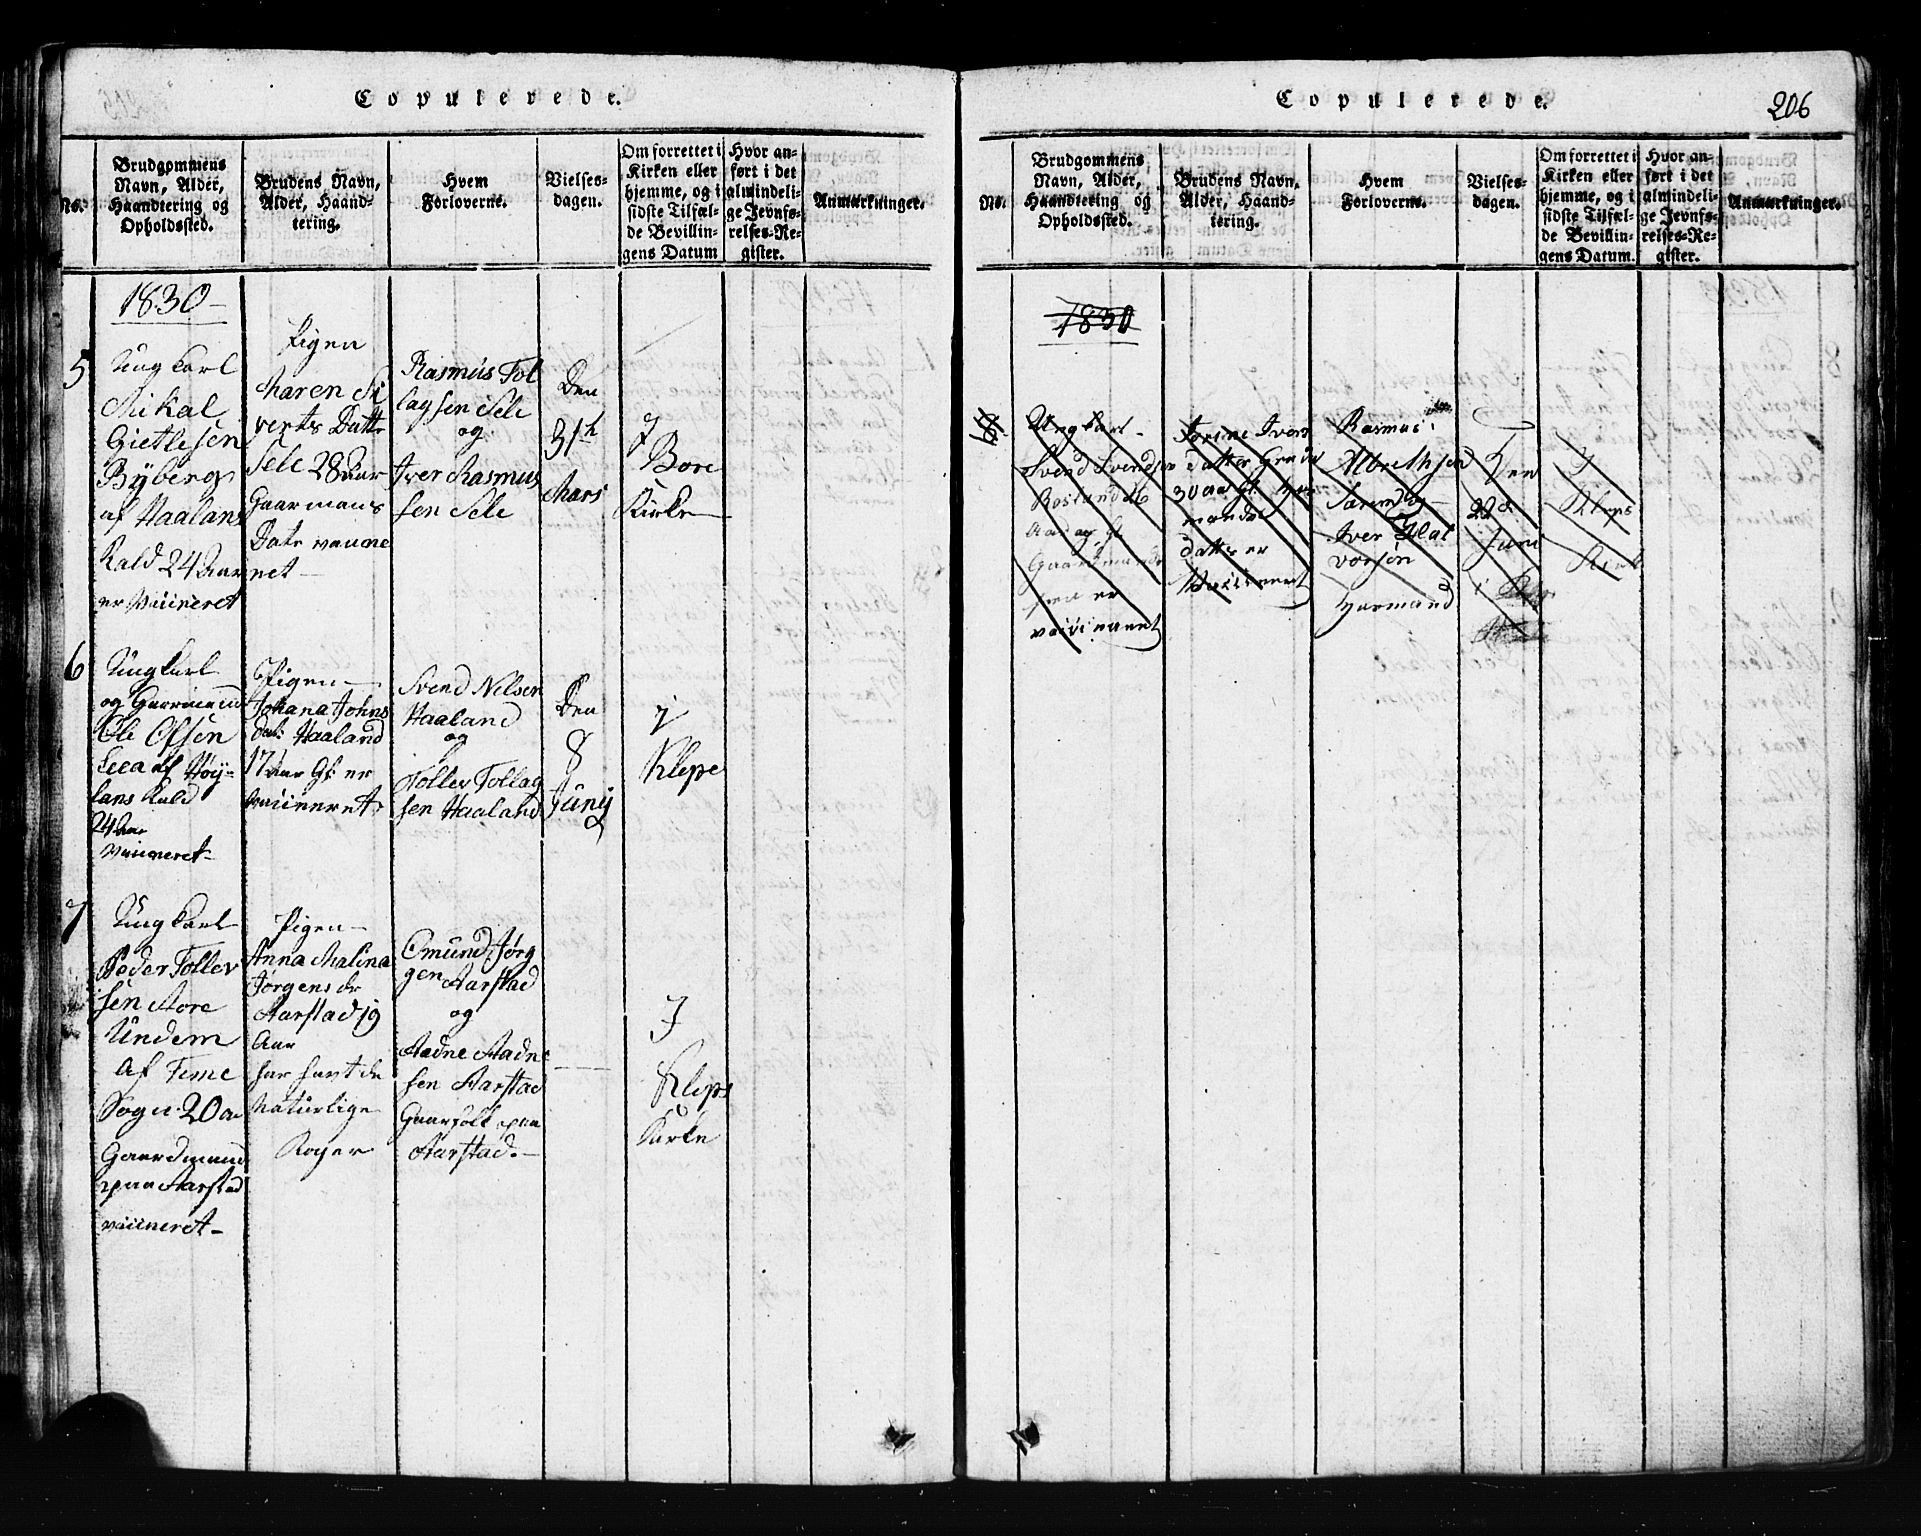 Copulerede.
No.
Brudgommens
Navn, Alder,
Haandtering og
Opholdssted.
Brudens Navn,
Alder, Haand-
tering.
Hvem
Forloverne.
Vielses-
dagen.
Om forrettet i
Kirken eller
hjemme, og i
sidste Tilfæl-
de Bevillin-
gens Datum
Hvor an-
ført i det
almindeli-
ge Jevnfø-
relses-Re-
gister.
Anmærkninger.
1830
5
Ung karl
Mikal
Gietlesen
Byberg
af Haalans
Kald 24 Aar
er Vaiineret
Pigen
Maren Si
verts Datte
Sele 28 Aar
Gaarmans
Date vaiine
net
Rasmus Tol
lagsen Sele
og
Iver Rasmus
sen Sele
Den
31th
Mars
I
Bore
Kirke
6
Ung karl
og Gaarmand
Ole Olsen
Leea af Høy-
lans Kald
24 Aar
Vaiineret
Pigen
Johana Johns
dat: Haaland
17 Aar Gl: er
vaiineret
Svend Nilsen
Haaland
og
Tollev Tollag
sen Haaland
Den
8
Juny
I
Klepe
7
Ung karl
Peder Tollev
sen Aore
Undem
af Time
Sogn 20 aa
Gaardmand
paa Aarstad
vaiineret
Pigen
Anna Malina
Jørgens dr
Aarstad 19
Aar
har havt de
Naturlige
Koper
Omund Jørg
gen Aarstad
og
Aadne Aadne
sen Aarstad
Gaarfolk paa
Aarstad.
I
Kleps
Kirke
Copulerede.
206
No.
Brudgommens
Navn, Alder,
Haandtering og
Opholdssted.
Brudens Navn,
Alder, Haand-
tering.
Hvem
Forloverne.
Vielses-
dagen.
Om forrettet i
Kirken eller
hjemme, og i
sidste Tilfæl-
de Bevillin-
gens Datum.
Hvor an-
ført i det
almindeli-
ge Jevnfø-
relses-Re-
gister.
Anmærkninger.
1830
8
Ung karl
Svend Svendsen
Aar og gl
Gaardmands
er
vaiineret
Torine Ivers
datter
30 Aa gl
mands
datter er
Vaiineret
Rasmus
Albrethsen
og
Iver Hal
vorsen
Den
22d
Juni
i
I
Kleps
Kirk